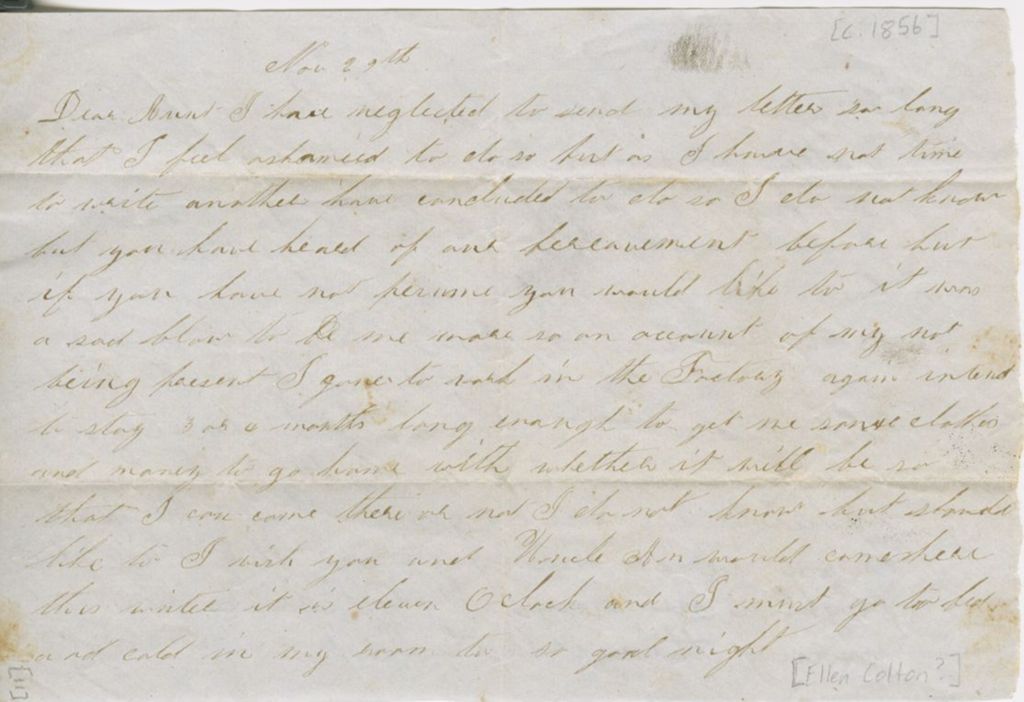 [c. 1856]
Nov 29th
Dear Aunt I have neglected to send my letter so long
that I feel ashameed to do so but as I have not time
to write another have concluded to do so I do not know
but you have heard of our bereavement before but
if you have not perume you would like to it was
a sad blow to me more so on account of my not
being present I gone to work in the Factory again intend
to stay 3 or 4 months long enough to get me some clothes
and money to go home with whether it will be so
that I can come there or not I do not know but should
like to I wish you and Uncle would come here
this winter it is eleven O clock and I must go to bed
and cold in my room to so good night
[Ellen Colton?]
[11]